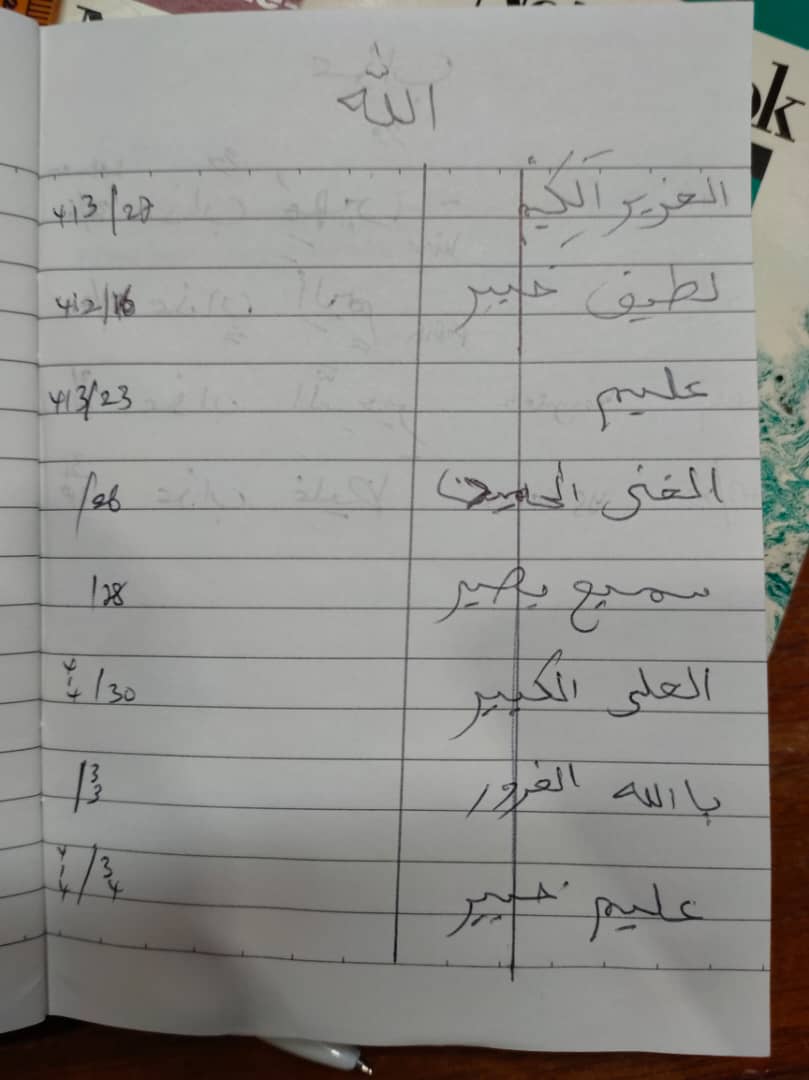 الله
العزيز الحكيم 413/27
لطيف خبير 412/16
عليم 413/23
الغنى الحميد /26
سميع بصير /28
العلى الكبير 414/30
باالله الغرور /33
عليم خبير 414/34
ok